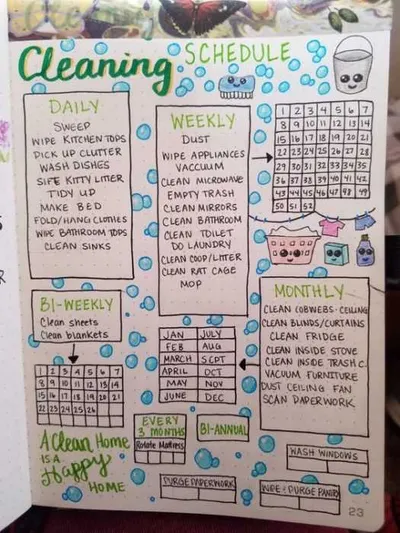 Cleaning SCHEDULE
DAILY
SWEEP
WIPE KITCHEN TOPS
PICK UP CLUTTER
WASH DISHES
SIFE KITTY LITER
TIDY UP
MAKE BED
FOLD/HANG CLOTHES
WIPE BATHROOM TOPS
CLEAN SINKS
WEEKLY
DUST
WIPE APPLIANCES
VACCUUM
CLEAN MICROWAVE
EMPTY TRASH
CLEAN MIRRORS
CLEAN BATHROOM
CLEAN TOILET
DO LAUNDRY
CLEAN COOP/LITTER
CLEAN RAT CAGE
MOP
1 2 3 4 5 6 7
8 9 10 11 12 13 14
15 16 17 18 19 20 21
22 23 24 25 26 27 28
29 30 31 32 33 34 35
36 37 38 39 40 41 42
43 44 45 46 47 48 49
50 51 52
BI-WEEKLY
Clean sheets
Clean blankets
1 2 3 4 5 6 7
8 9 10 11 12 13 14
15 16 17 18 19 20 21
22 23 24 25 26
JAN JULY
FEB AUG
MARCH SEPT
APRIL OCT
MAY NOV
JUNE DEC
MONTHLY
CLEAN COBWEBS-CEILING
CLEAN BLINDS/CURTAINS
CLEAN FRIDGE
CLEAN INSIDE STOVE
CLEAN INSIDE TRASH C
VACUUM FURNITURE
DUST CEILING FAN
SCAN PAPERWORK
A Clean Home
IS A
Happy
HOME
EVERY
3 MONTHS
Rotate Mattress
BI-ANNUAL
WASH WINDOWS
PURGE PAPERWORK
WIPE + PURGE PANTRY
23